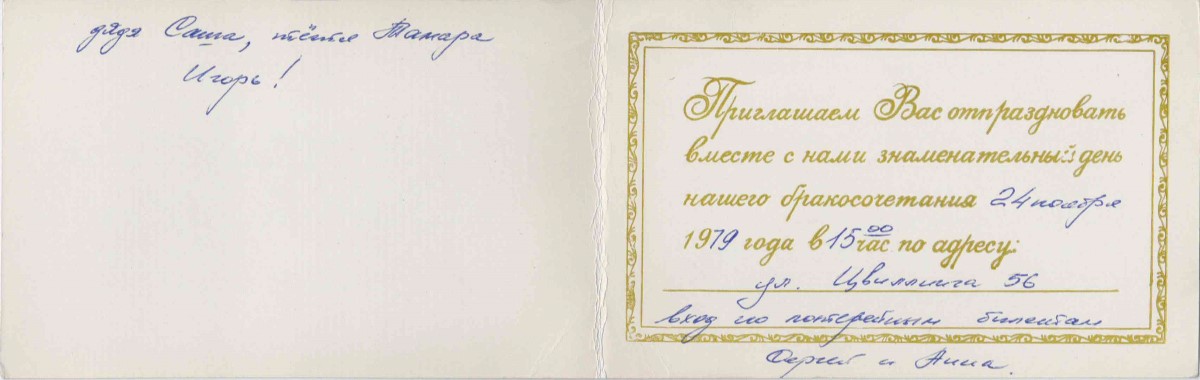 дядя Саша, тётя Тамара
Игорь!
Приглашаем Вас отпраздновать
вместе с нами знаменательный день
нашего бракосочетания 24 ноября
1979 года в 15⁰⁰ час по адресу:
ул. Цвиллинга 56
вход по лотерейным билетам
Сергей и Анна.